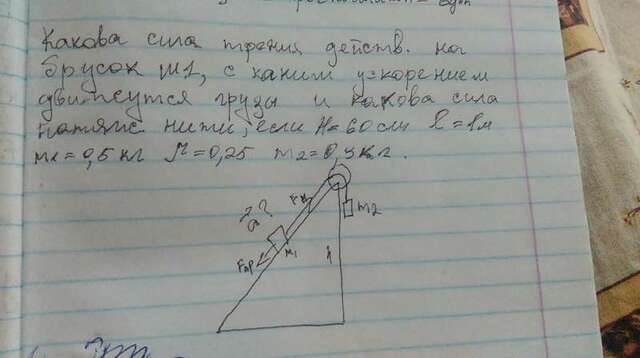 Какова сила трения действ. на
брусок m1, с каким ускорением
движутся грузы и какова сила
натяж. нити, если H=60 см l=1м
m1=0,5 кг μ=0,25 m2=0,5кг.
Fн
a?
m2
m1
h
Fтр